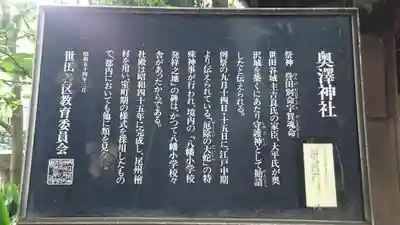 奥澤神社
祭神 誉田別命宇賀魂命
世田谷城主吉良氏の家臣、大平氏が奥
沢城を築くにあたり守護神として勧請
したと伝えられる。
例祭の九月十四・十五日に、江戸中期
より伝えられている「厄除の大蛇」の特
殊神事が行われ、境内の「八幡小学校
発祥之地」の碑は、かつて八幡小学校々
舎があったからである。
社殿は昭和四十五年に完成し、尾州檜
材を用い室町期の様式を採用したもの
で、都内においても他に類を見ない。
昭和五十四年三月
世田谷区教育委員会